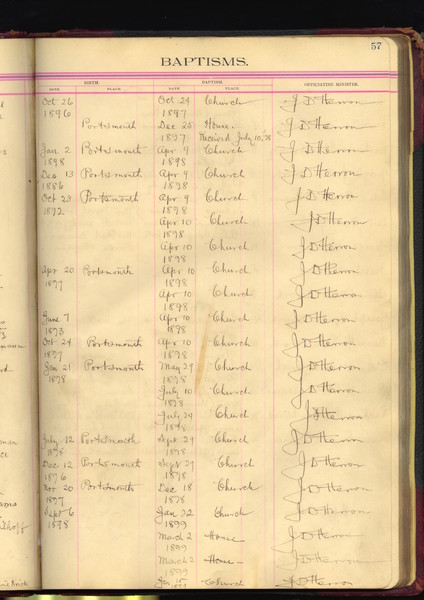 57
BAPTISMS.
BIRTH. BAPTISM. OFFICIATING MINISTER.
DATE. PLACE. DATE. PLACE.
Oct 26 Oct 24 Church J D Herron
1896 1897
Portsmouth Dec 26 Home. J D Herron
1897 Received July 10, 98
Jan 2 Portsmouth Apr 9 Church J D Herron
1898 1898
Dec 13 Portsmouth Apr 9 Church J D Herron
1886 1898
Oct 23 Portsmouth Apr 9 Church J D Herron
1892 1898
Apr 10 Church J D Herron
1898
Apr 10 Church J D Herron
1898
Apr 20 Portsmouth Apr 10 Church J D Herron
1897 1898
Apr 10 Church J D Herron
1898
June 7 Apr 10 Church J D Herron
1893 1898
Oct 24 Portsmouth Apr 10 Church J D Herron
1897 1898
Jan 21 Portsmouth May 29 Church J D Herron
1898 1898
July 10 Church J D Herron
1898
July 24 Church J D Herron
1898
July 12 Portsmouth Sept 29 Church J D Herron
1898 1898
Dec 12 Portsmouth Sept 29 Church J D Herron
1896 1898
Nov 20 Portsmouth Dec 18 Church J D Herron
1897 1898
Sept 6 Jan 22 Church J D Herron
1898 1899
March 2 Home J D Herron
1899
March 2 Home J D Herron
1899
Jan 15 Church J D Herron